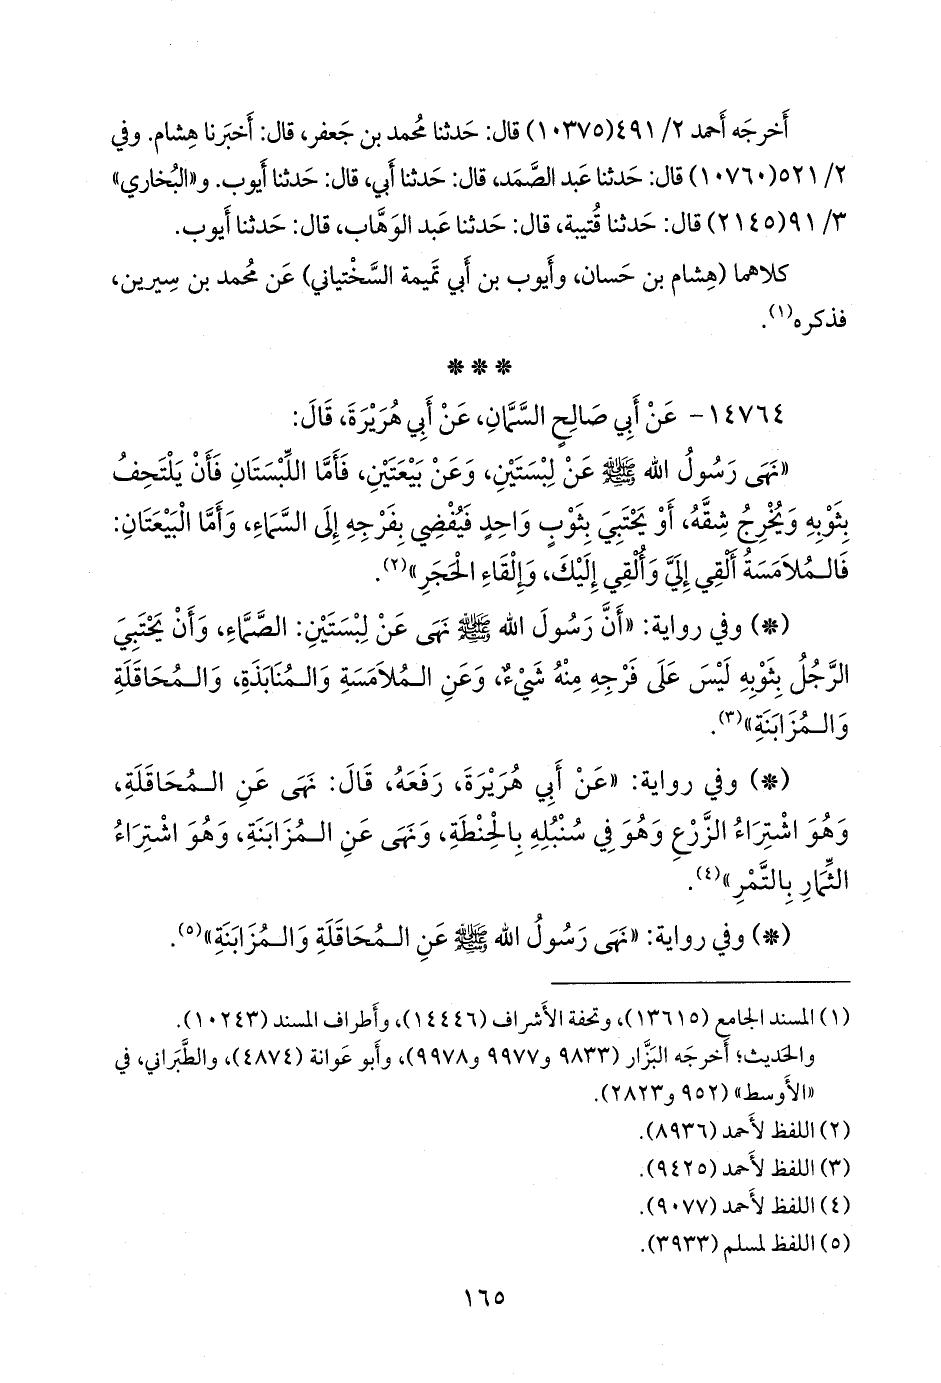 أَخرجَه أَحمد ٢/ ٤٩١(١٠٣٧٥) قال: حَدثنا مُحمد بن جَعفر، قال: أَخبَرنا هِشام. وفي
٢/ ٥٢١(١٠٧٦٠) قال: حَدثنا عَبد الصَّمَد، قال: حَدثنا أَبي، قال: حَدثنا أَيوب. و«البُخاري»
٣/ ٩١(٢١٤٥) قال: حَدثنا قُتيبة، قال: حَدثنا عَبد الوَهَّاب، قال: حَدثنا أَيوب.
كلاهما (هِشام بن حَسان، وأَيوب بن أَبي تَميمة السَّخْتياني) عَن مُحمد بن سِيرين،
فذكره(١).
***
١٤٧٦٤- عَنْ أَبِي صَالِحٍ السَّمَّانِ، عَنْ أَبِي هُرَيْرَةَ، قَالَ:
«نَهَى رَسُولُ الله ﷺ عَنْ لِبْسَتَيْنِ، وَعَنْ بَيْعَتَيْنِ، فَأَمَّا اللِّبْسَتَانِ فَأَنْ يَلْتَحِفُ
بِثَوْبِهِ وَيُخْرِجُ شِقَّهُ، أَوْ يَحْتَبِيَ بِثَوْبٍ وَاحِدٍ فَيُفْضِي بِفَرْجِهِ إِلَى السَّمَاءِ، وَأَمَّا الْبَيْعَتَانِ:
فَالـمُلاَمَسَةُ أَلْقِي إِلَيَّ وَأُلْقِي إِلَيْكَ، وَإِلْقَاءِ الْحَجَرِ»(٢).
(*) وفي رواية: «أَنَّ رَسُولَ الله ﷺ نَهَى عَنْ لِبْسَتَيْنِ: الصَّمَّاءِ، وَأَنْ يَحْتَبِيَ
الرَّجُلُ بِثَوْبِهِ لَيْسَ عَلَى فَرْجِهِ مِنْهُ شَيْءٌ، وَعَنِ الـمُلاَمَسَةِ وَالـمُنَابَذَةِ، وَالـمُحَاقَلَةِ
وَالـمُزَابَنَةِ»(٣).
(*) وفي رواية: «عَنْ أَبِي هُرَيْرَةَ، رَفَعَهُ، قَالَ: نَهَى عَنِ الـمُحَاقَلَةِ،
وَهُوَ اشْتِرَاءُ الزَّرْعِ وَهُوَ فِي سُنْبُلِهِ بِالْحِنْطَةِ، وَنَهَى عَنِ الـمُزَابَنَةِ، وَهُوَ اشْتِرَاءُ
الثِّمَارِ بِالتَّمْرِ»(٤).
(*) وفي رواية: «نَهَى رَسُولُ الله ﷺ عَنِ الـمُحَاقَلَةِ وَالـمُزَابَنَةِ»(٥).
(١) المسند الجامع (١٣٦١٥)، وتحفة الأشراف (١٤٤٤٦)، وأطراف المسند (١٠٢٤٣).
والحديث؛ أخرجَه البَزَّار (٩٨٣٣ و٩٩٧٧ و٩٩٧٨)، وأبو عَوانة (٤٨٧٤)، والطَّبَراني، في
«الأَوسط» (٩٥٢ و٢٨٢٣).
(٢) اللفظ لأَحمد (٨٩٣٦).
(٣) اللفظ لأَحمد (٩٤٢٥).
(٤) اللفظ لأَحمد (٩٠٧٧).
(٥) اللفظ لمسلم (٣٩٣٣).
١٦٥